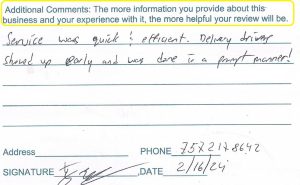 Additional Comments: The more information you provide about this
business and your experience with it, the more helpful your review will be.
Service was quick & efficient. Delivery driver
showed up early and was done in a prompt manner!
Address
PHONE 757 217 8642
SIGNATURE
DATE 2/16/24